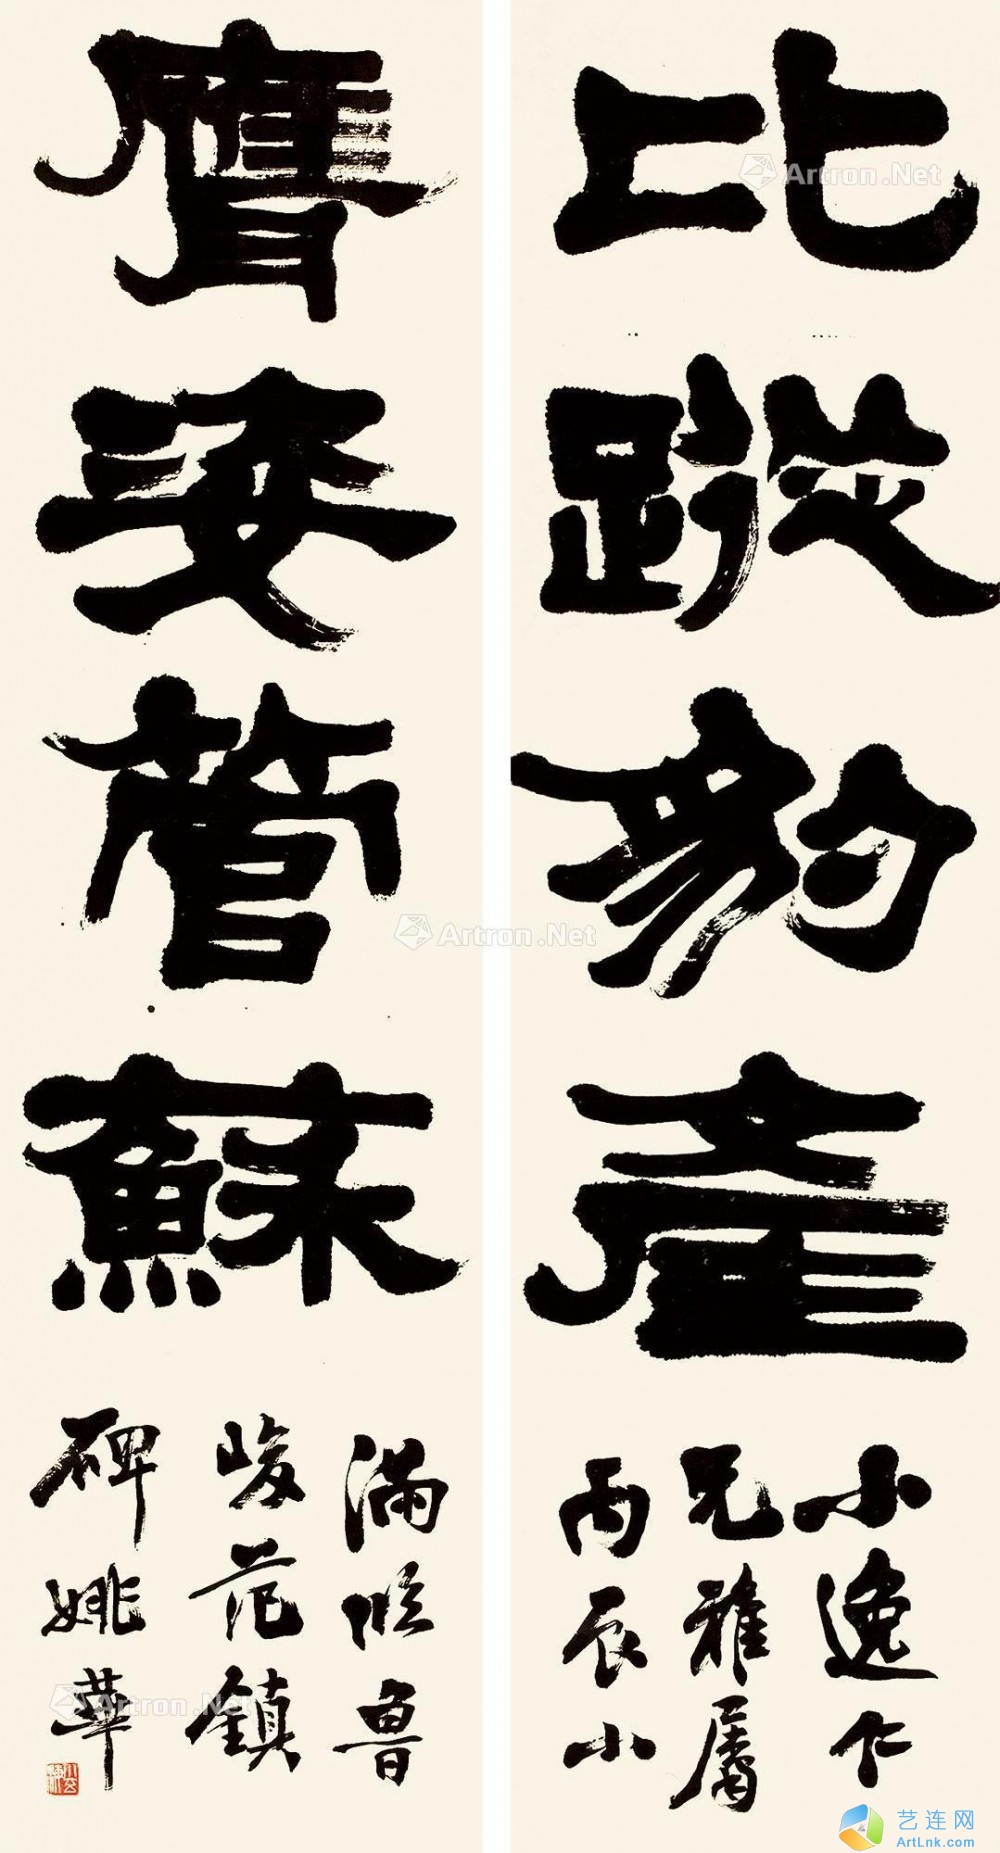 比蹤豹產
小逸仁
兄雅屬
丙辰小
膺姿管蘇
滿臨魯
峻范鎮
碑姚華
Artron.Net
Artron.Net
Artron.Net
艺连网
ArtLnk.com